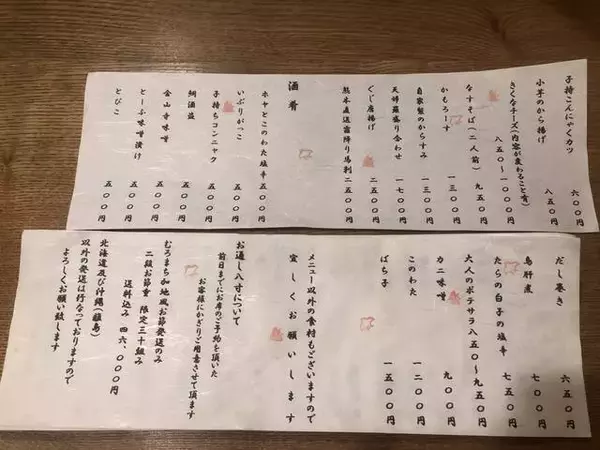 子持こんにゃくカツ 六〇〇円
小芋のから揚げ 八五〇円
きくなチーズ(内容が変わること有)
八五〇〜一〇〇〇円
なすそば(二人前) 九五〇円
かもろーす 一三〇〇円
自家製のからすみ 一三〇〇円
天婦羅盛り合わせ 一七〇〇円
ぐじ唐揚げ 二五〇〇円
熊本直送霜降り馬刺 二五〇〇円
酒肴
ホヤとこのわた塩辛 五〇〇円
いぶりがっこ 五〇〇円
子持ちコンニャク 五〇〇円
鯛酒盗 五〇〇円
金山寺味噌 五〇〇円
とーふ味噌漬け 五〇〇円
とびこ 五〇〇円
だし巻き 六五〇円
鳥肝煮 七〇〇円
たらの白子の塩辛 七五〇円
大人のポテサラ 八五〇〜九五〇円
カニ味噌 九〇〇円
このわた 一二〇〇円
ばち子 一五〇〇円
メニュー以外の食材もございますので
宜しくお願いします
お通し八寸について
前日までにお席のご予約を頂いた
お客様にかぎりご用意させて頂ます
むろまち加地風お節発送のみ
二段お節重 限定三十組み
送料込み 四六、〇〇〇円
北海道及び沖縄(離島)
以外の発送は行なっておりますので
よろしくお願い致します